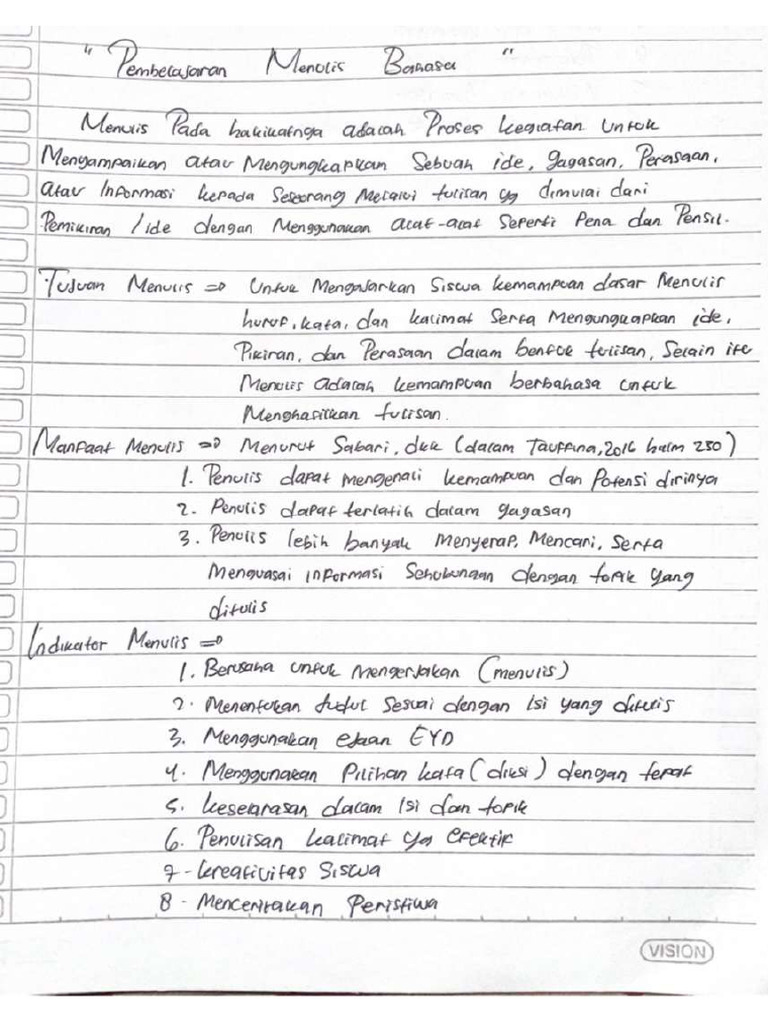 " Pembelajaran Menulis Bahasa "
Menulis Pada hakikatnya adalah Proses kegiatan Untuk
Menyampaikan atau Mengungkapkan Sebuah ide, gagasan, Perasaan,
atau Informasi kepada Seseorang Melalui tulisan yg dimulai dari
Pemikiran /ide dengan Menggunakan alat-alat Seperti Pena dan Pensil.
Tujuan Menulis => Untuk Mengajarkan Siswa kemampuan dasar Menulis
huruf, kata, dan kalimat Serta Mengungkapkan ide,
Pikiran, dan Perasaan dalam bentuk tulisan, Selain itu
Menulis adalah kemampuan berbahasa untuk
Menghasilkan tulisan.
Manfaat Menulis => Menurut Sabari, dkk (dalam Tauffina, 2016 halm 250)
1. Penulis dapat mengenali kemampuan dan Potensi dirinya
2. Penulis dapat terlatih dalam gagasan
3. Penulis lebih banyak Menyerap, Mencari, Serta
Menguasai Informasi Sehubungan dengan topik yang
ditulis
Indikator Menulis =>
1. Berusaha untuk mengerjakan (menulis)
2. Menentukan judul Sesuai dengan Isi yang ditulis
3. Menggunakan ejaan EYD
4. Menggunakan Pilihan kata (diksi) dengan tepat
5. keselarasan dalam Isi dan topik
6. Penulisan kalimat yg efektif
7 - kreativitas Siswa
8 - Menceritakan Peristiwa
VISION